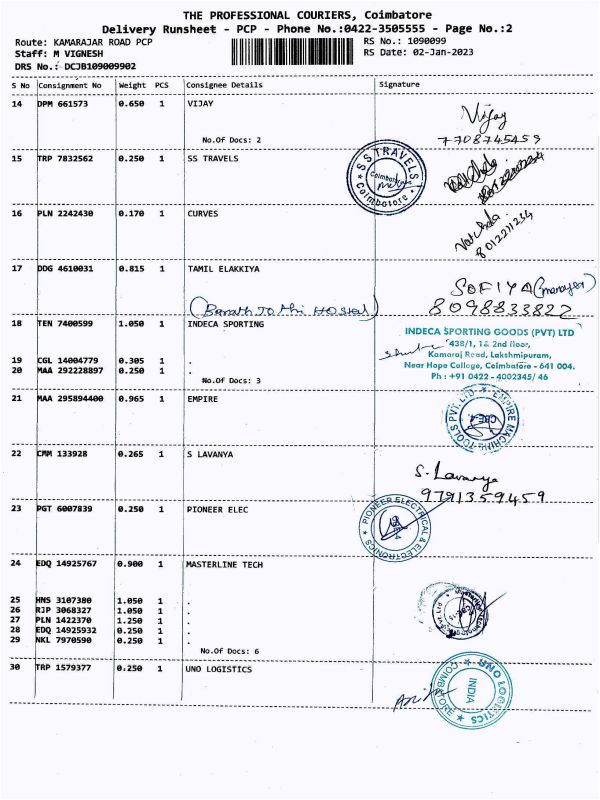 THE PROFESSIONAL COURIERS, Coimbatore
Delivery Runsheet - PCP - Phone No.:0422-3505555 - Page No.:2
Route: KAMARAJAR ROAD PCP
RS No.: 1090099
Staff: M VIGNESH
RS Date: 02-Jan-2023
DRS No.: DCJB109009902
S No Consignment No Weight PCS Consignee Details Signature
14 DPM 661573 0.650 1 VIJAY
Vijay
No.Of Docs: 2
7708745459
15 TRP 7832562 0.250 1 SS TRAVELS
SS TRAVELS
Coimbatore
Coimbatore
16 PLN 2242430 0.170 1 CURVES
8012211234
17 DDG 4610031 0.815 1 TAMIL ELAKKIYA
SOFIYA (manager)
8098833822
18 TEN 7400599 1.050 1 INDECA SPORTING
INDECA SPORTING GOODS (PVT) LTD
438/1, 1& 2nd floor,
Kamaraj Road, Lakshmipuram,
Near Hope College, Coimbatore - 641 004.
Ph : +91 0422 - 4002345/ 46
19 CGL 14004779 0.305 1 .
20 MAA 292228897 0.250 1 .
No.Of Docs: 3
21 MAA 295894400 0.965 1 EMPIRE
EMPIRE MACHINE TOOLS PVT. LTD
22 CMM 133928 0.265 1 S LAVANYA
S. Lavanya
9791359459
23 PGT 6007839 0.250 1 PIONEER ELEC
PIONEER ELECTRICAL & ELECTRONICS
24 EDQ 14925767 0.900 1 MASTERLINE TECH
25 HNS 3107380 1.050 1 .
26 RJP 3068327 1.050 1 .
27 PLN 1422370 1.250 1 .
28 EDQ 14925932 0.250 1 .
29 NKL 7970590 0.250 1 .
No.Of Docs: 6
30 TRP 1579377 0.250 1 UNO LOGISTICS
UNO LOGISTICS
INDIA
COIMBATORE